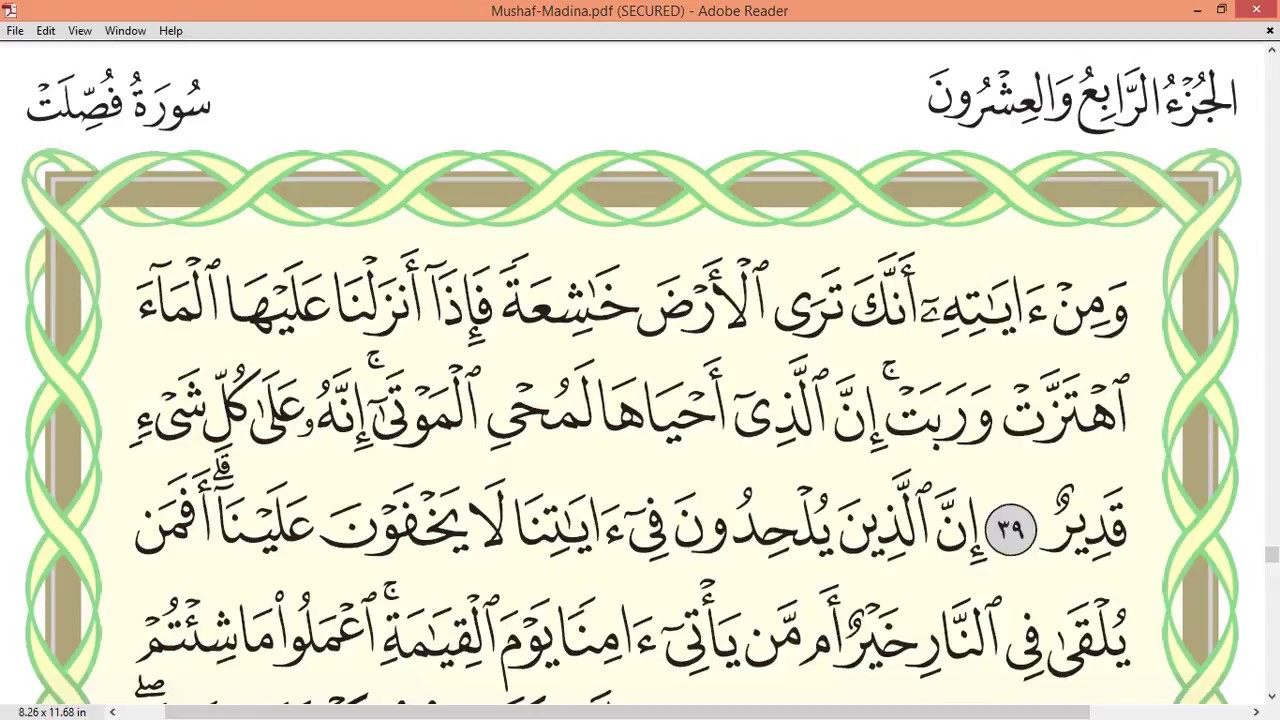 Mushaf-Madina.pdf (SECURED) - Adobe Reader
File Edit View Window Help
الجُزْءُ الرَّابِعُ وَالعِشْرُونَ
سُورَةُ فُصِّلَتْ
وَمِنْ ءَايَٰتِهِۦٓ أَنَّكَ تَرَى ٱلْأَرْضَ خَٰشِعَةً فَإِذَآ أَنزَلْنَا عَلَيْهَا ٱلْمَآءَ
ٱهْتَزَّتْ وَرَبَتْ ۚ إِنَّ ٱلَّذِىٓ أَحْيَاهَا لَمُحْىِ ٱلْمَوْتَىٰٓ ۚ إِنَّهُۥ عَلَىٰ كُلِّ شَىْءٍ
قَدِيرٌ ٣٩ إِنَّ ٱلَّذِينَ يُلْحِدُونَ فِىٓ ءَايَٰتِنَا لَا يَخْفَوْنَ عَلَيْنَآ ۗ أَفَمَن
يُلْقَىٰ فِى ٱلنَّارِ خَيْرٌ أَم مَّن يَأْتِىٓ ءَامِنًا يَوْمَ ٱلْقِيَٰمَةِ ۚ ٱعْمَلُوا۟ مَا شِئْتُمْ ۖ
8.26 x 11.68 in